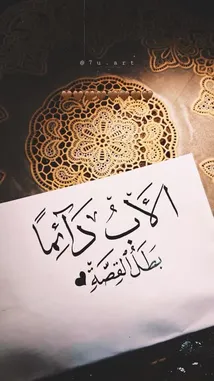 @7u.art
الأَبُ دَآئِمًا
بَطَلُ ٱلْقِصَّةِ